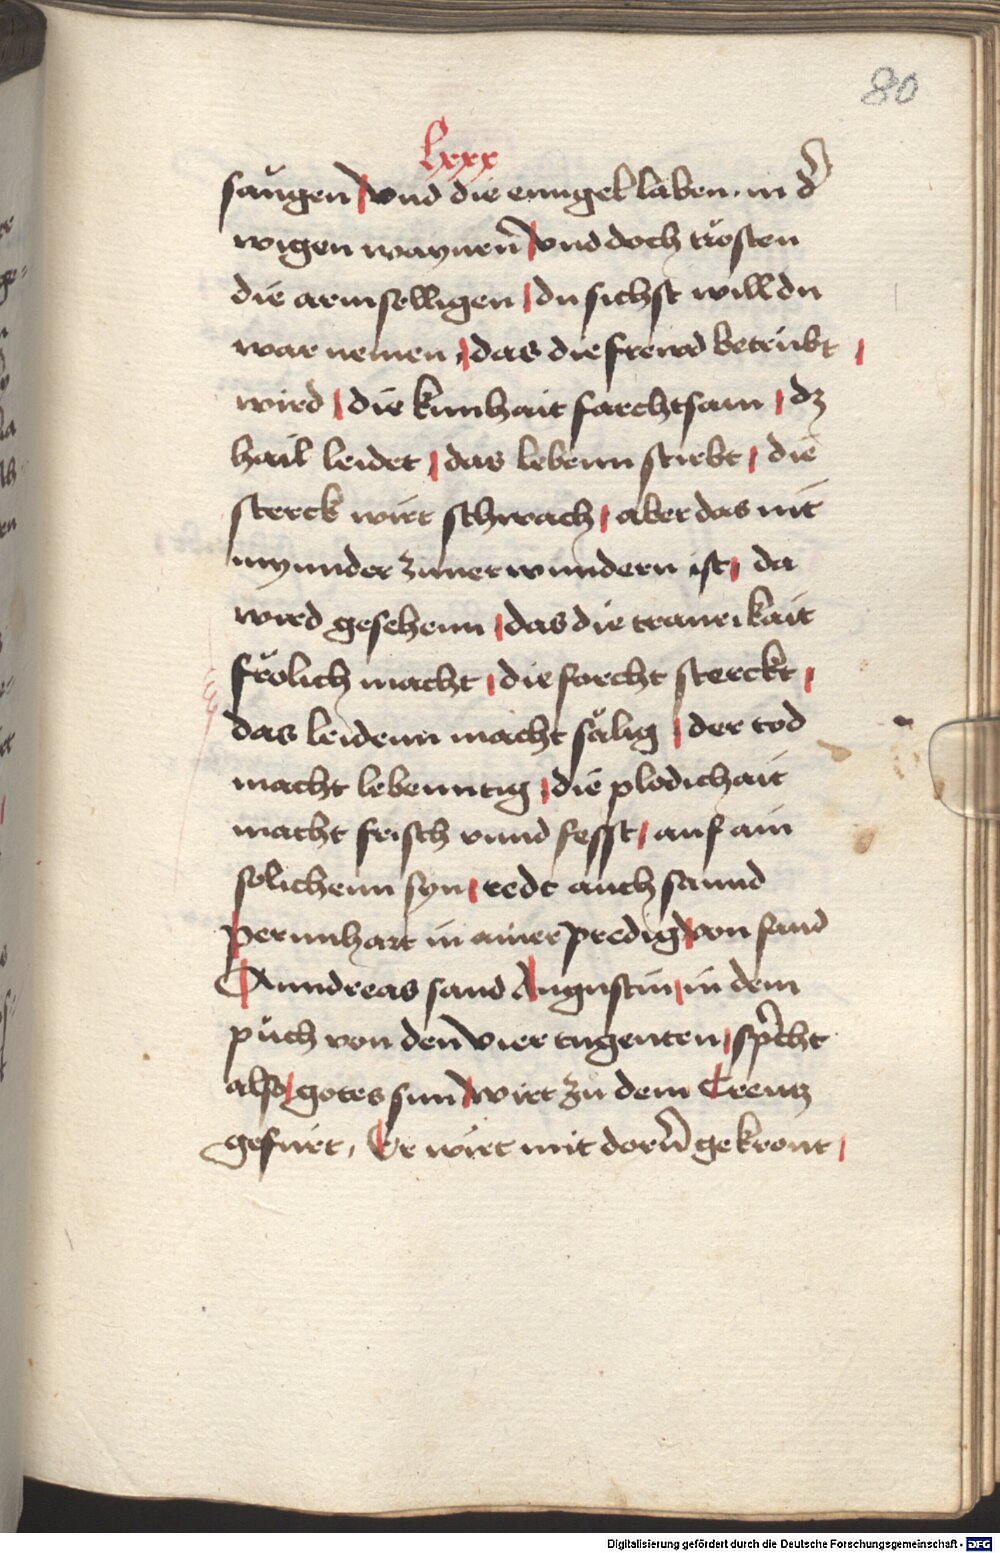 80
lxxx
saugen / vnd die enngel laben · in d᷑
wigen waynen̄ / vnd doch trösten
die armselligen / du sichst will du
war nemen / das die frewd betrübt /
wird / die kunhait forchtsam / dz
hail leidet / das lebenn stirbt / die
sterck wirt schwach / aber das nit
mynnder zuuerwundern ist / da
wird gesehenn / das die traurikait
frölich macht / die forcht sterckt /
das leidenn macht sälig / der tod
macht lebenntig / die plodichait
macht frisch vnnd fesst / auf ain
solichenn syn / redt auch sannd
Pernnhart in ainer predig / von sand
Anndreas sand Augustin / in dem
půch von den vier tugenten / sp̄cht
also / gotes sun / wirt zů dem Creutz
gefürt / Er wirt mit dorn̄ gekront /
Digitalisierung gefördert durch die Deutsche Forschungsgemeinschaft - DFG